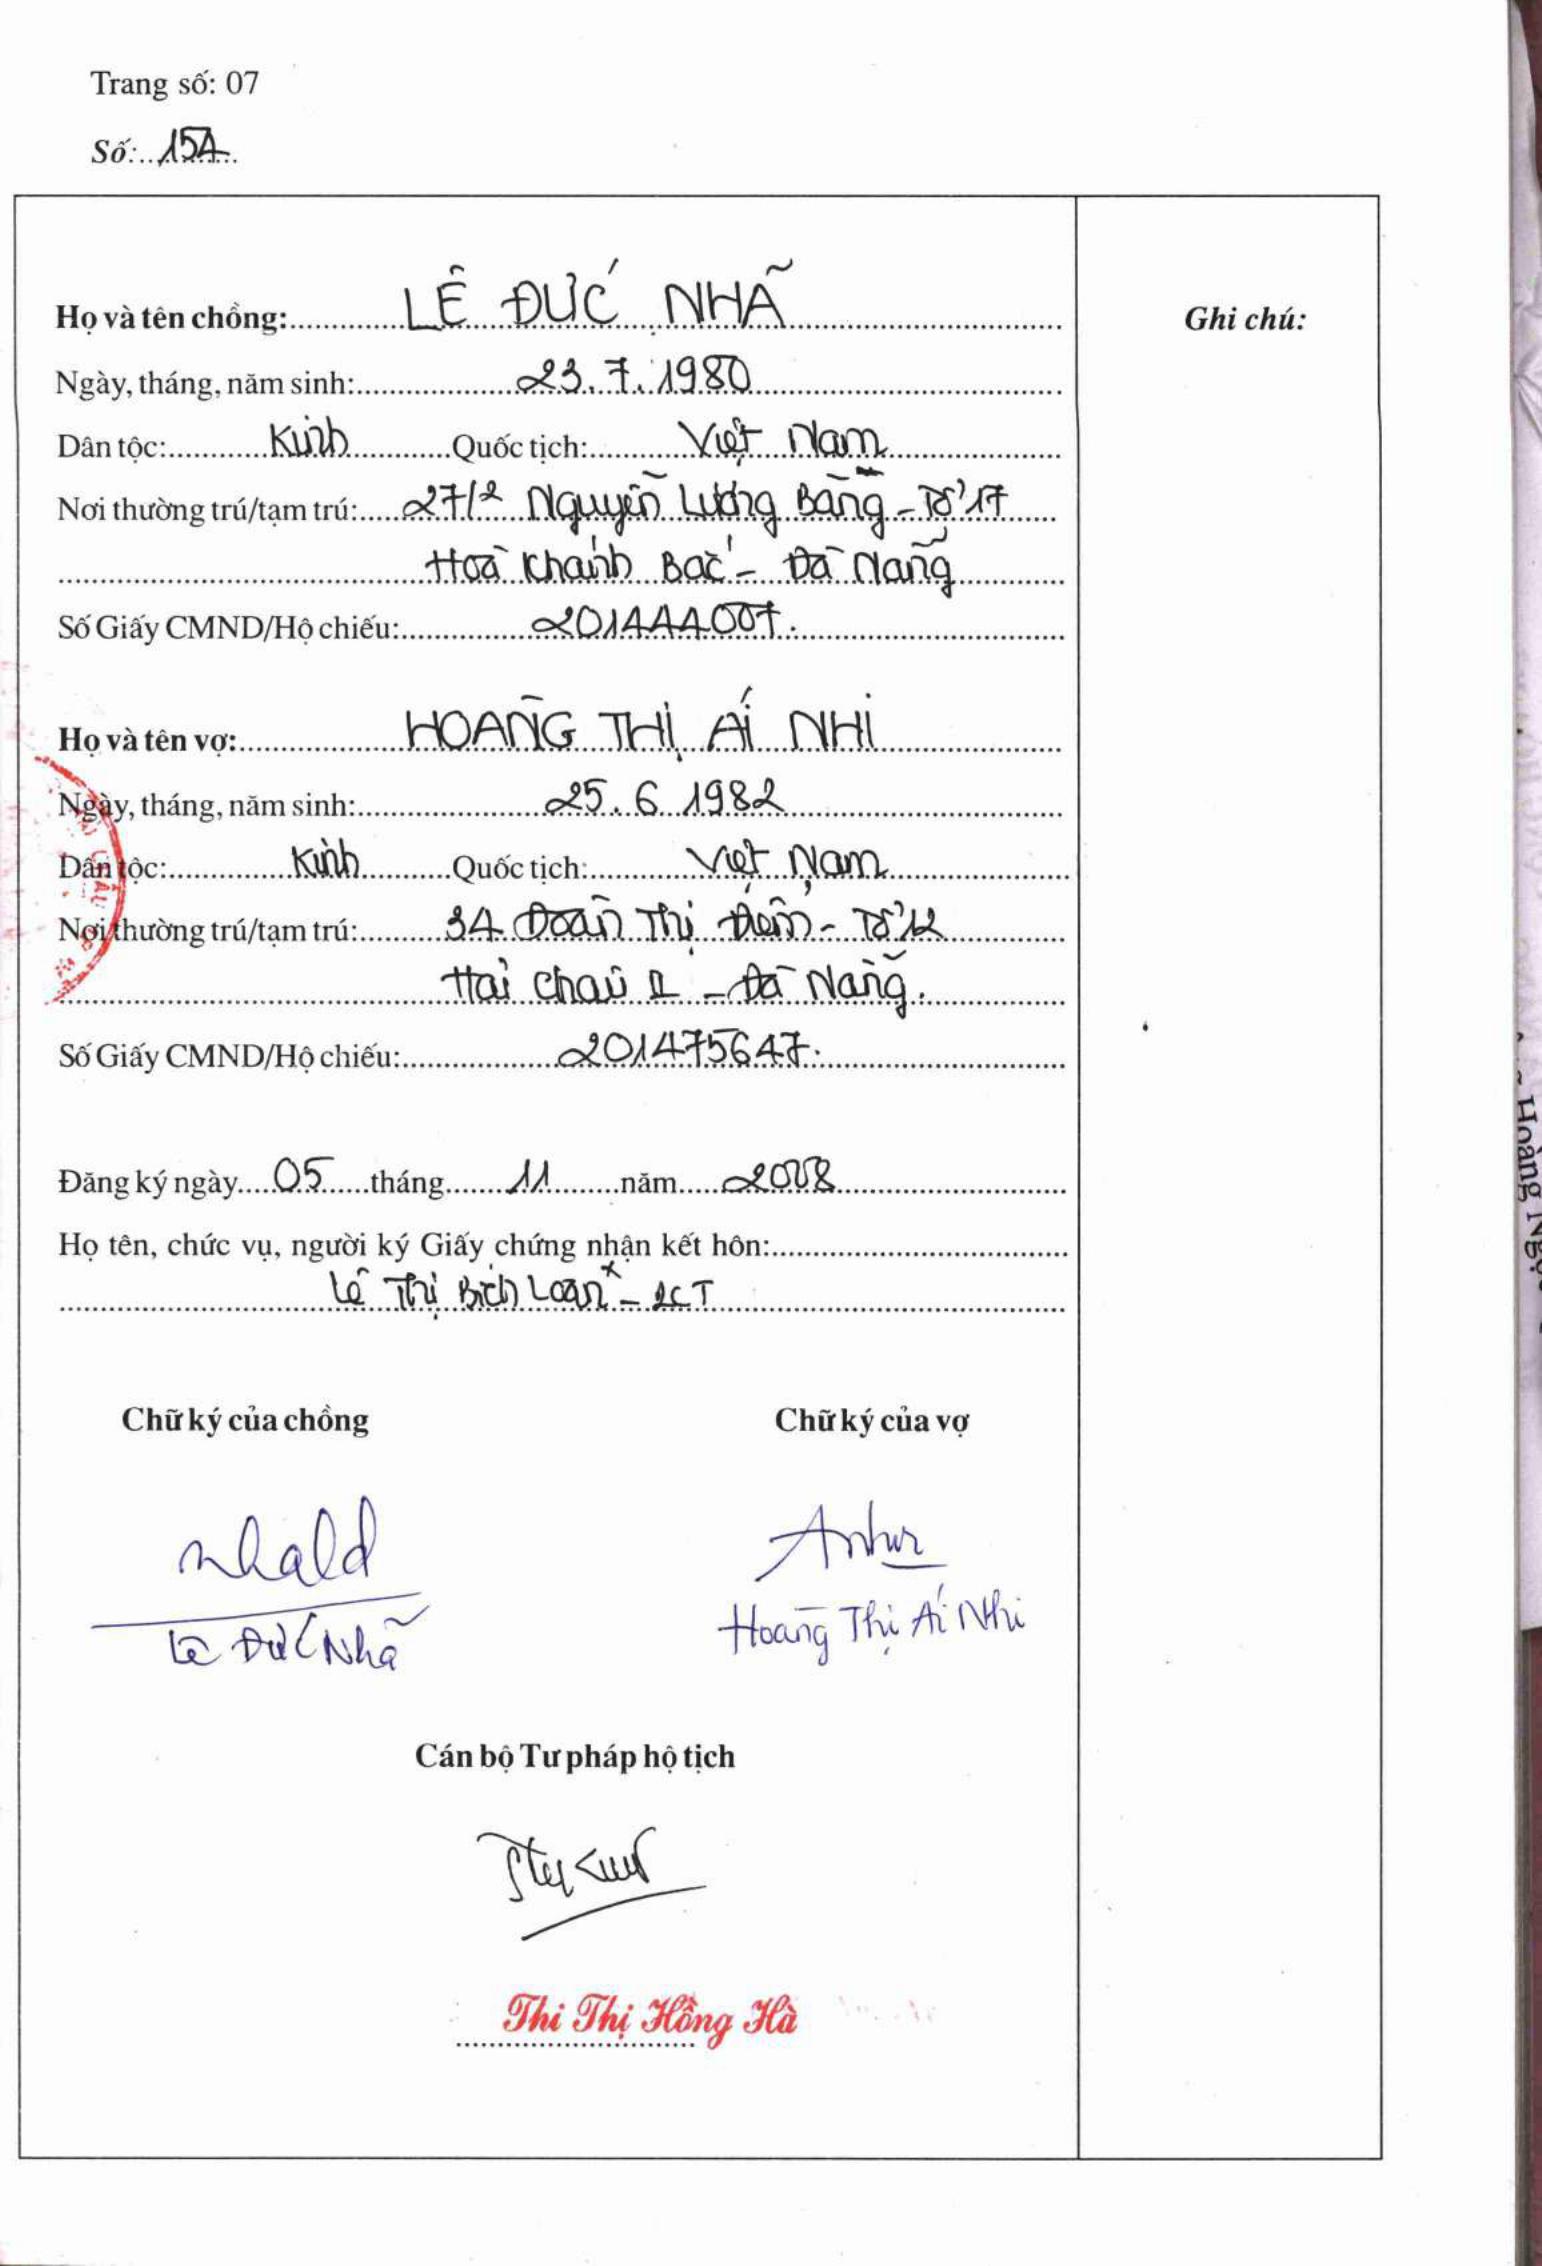 Trang số: 07
Số: 154
Họ và tên chồng: LÊ ĐỨC NHÃ
Ghi chú:
Ngày, tháng, năm sinh: 23.7.1980
Dân tộc: Kinh Quốc tịch: Việt Nam
Nơi thường trú/tạm trú: 27/2 Nguyễn Lương Bằng - Tổ 17
Hoà Khánh Bắc - Đà Nẵng
Số Giấy CMND/Hộ chiếu: 201444007.
Họ và tên vợ: HOÀNG THỊ ÁI NHI
Ngày, tháng, năm sinh: 25.6.1982
Dân tộc: Kinh Quốc tịch: Việt Nam
Nơi thường trú/tạm trú: 34 Đoàn Thị Điểm - Tổ 12
Hải Châu II - Đà Nẵng.
Số Giấy CMND/Hộ chiếu: 201475647.
Đăng ký ngày 05 tháng 11 năm 2008
Họ tên, chức vụ, người ký Giấy chứng nhận kết hôn:
Lê Thị Bích Loan - CT
Chữ ký của chồng Chữ ký của vợ
nhald
Lê Đức Nhã
Hoàng Thị Ái Nhi
Cán bộ Tư pháp hộ tịch
Thi Thị Hồng Hà
Hoàng